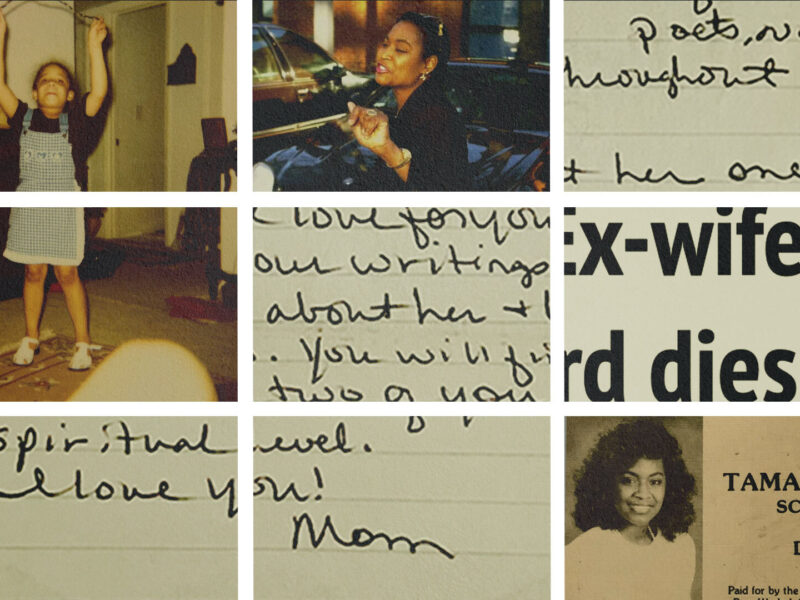 poets,
hroughout
t her one
love for you
our writings
about her +
.. You will fi
two of you
Ex-wife
rd dies
spiritual level.
love you!
Mom
TAMA
SC
D
Paid for by the